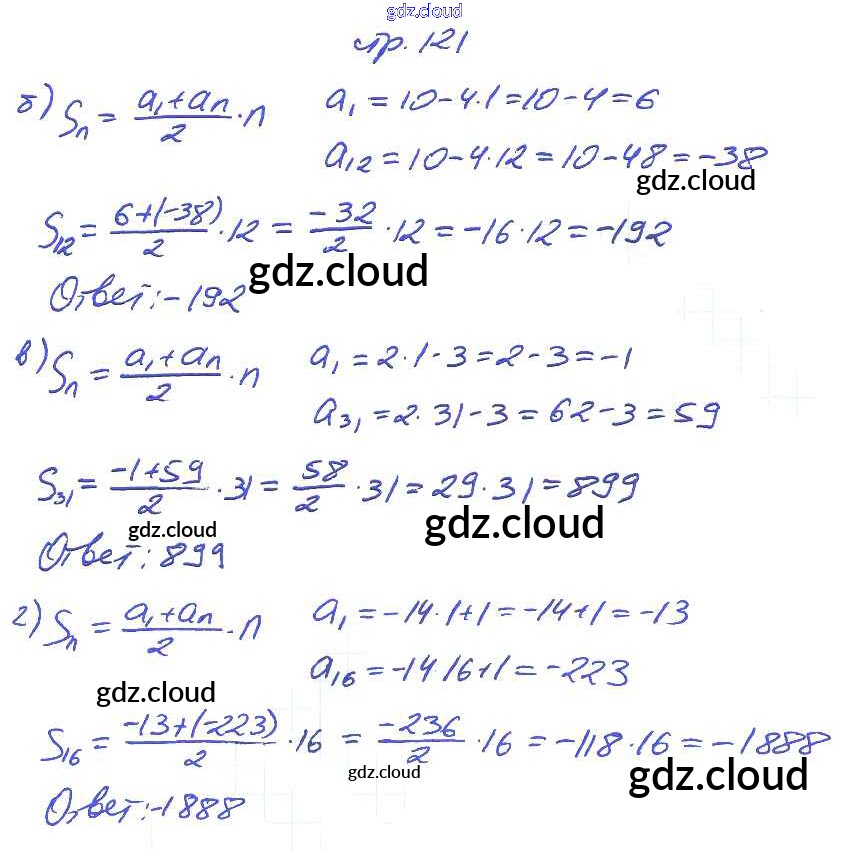 gdz.cloud
стр. 121
б) Sₙ = (a₁+aₙ)/2 · n a₁ = 10-4·1 = 10-4 = 6
a₁₂ = 10-4·12 = 10-48 = -38
gdz.cloud
S₁₂ = (6+(-38))/2 · 12 = -32/2 · 12 = -16·12 = -192
gdz.cloud
Ответ: -192
в) Sₙ = (a₁+aₙ)/2 · n a₁ = 2·1-3 = 2-3 = -1
a₃₁ = 2·31-3 = 62-3 = 59
S₃₁ = (-1+59)/2 · 31 = 58/2 · 31 = 29·31 = 899
gdz.cloud gdz.cloud
Ответ: 899
г) Sₙ = (a₁+aₙ)/2 · n a₁ = -14·1+1 = -14+1 = -13
a₁₆ = -14·16+1 = -223
gdz.cloud
S₁₆ = (-13+(-223))/2 · 16 = -236/2 · 16 = -118·16 = -1888
gdz.cloud gdz.cloud
Ответ: -1888